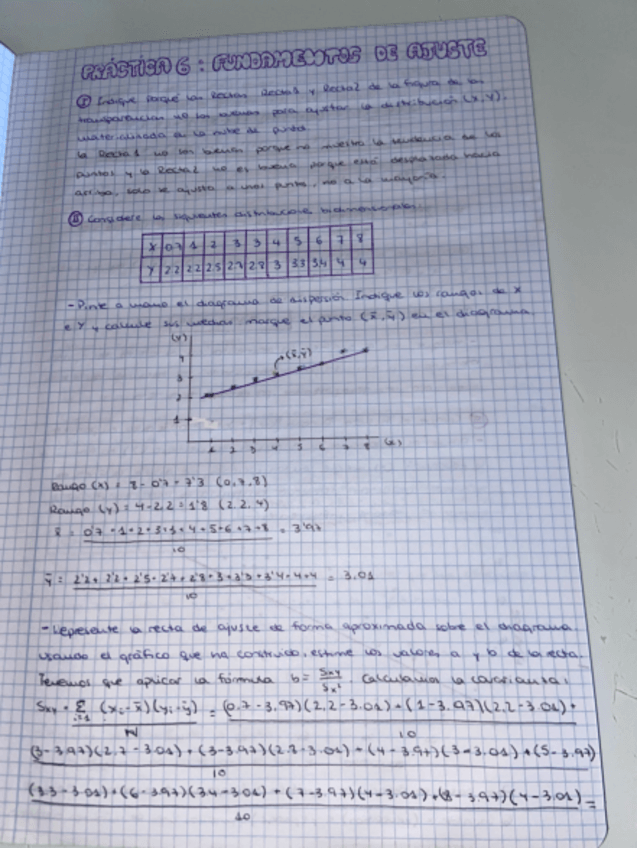 PRÁCTICA 6: FUNDAMENTOS DE AJUSTE
① Indique porqué las Rectas Recta1 y Recta2 de la figura de las
transparencias no son buenas para ajustar la distribución (X,Y),
materializada a la nube de puntos.
La Recta1 no son buenas porque no muestra la tendencia de los
puntos y la Recta2 no es buena porque está desplazada hacia
arriba, solo se ajusta a unos puntos, no a la mayoría.
② Considere la siguientes distribuciones bidimensionales:
X 0'7 1 2 3 3 4 5 6 7 8
Y 2'2 2'2 2'5 2'7 2'8 3 3'3 3'4 4 4
- Pinte a mano el diagrama de dispersión. Indique los rangos de X
e Y y calcule sus medias. Marque el punto (x̄,ȳ) en el diagrama.
(y)
4
3
2
1
(x̄,ȳ)
1 2 3 4 5 6 7 8 (x)
Rango (x) = 8 - 0'7 = 7'3 (0,7,8)
Rango (y) = 4 - 2,2 = 1'8 (2,2,4)
x̄ = 0'7+1+2+3+3+4+5+6+7+8 = 3'97
10
ȳ = 2'2+2'2+2'5+2'7+2'8+3+3'3+3'4+4+4 = 3.01
10
- Represente la recta de ajuste de forma aproximada sobre el diagrama.
Usando el gráfico que ha construido, estime los valores a y b de la recta.
Tenemos que aplicar la fórmula b = Sxy / Sx². Calculamos la covarianza:
Sxy = Σ i=1 (xi - x̄)(yi - ȳ) / N = (0.7 - 3.97)(2.2 - 3.01) + (1 - 3.97)(2.2 - 3.01) +
10
(3-3.97)(2.7-3.01) + (3-3.97)(2.8-3.01) + (4-3.97)(3-3.01) + (5-3.97)
10
(3.3-3.01) + (6-3.97)(3.4-3.01) + (7-3.97)(4-3.01) + (8-3.97)(4-3.01) =
10